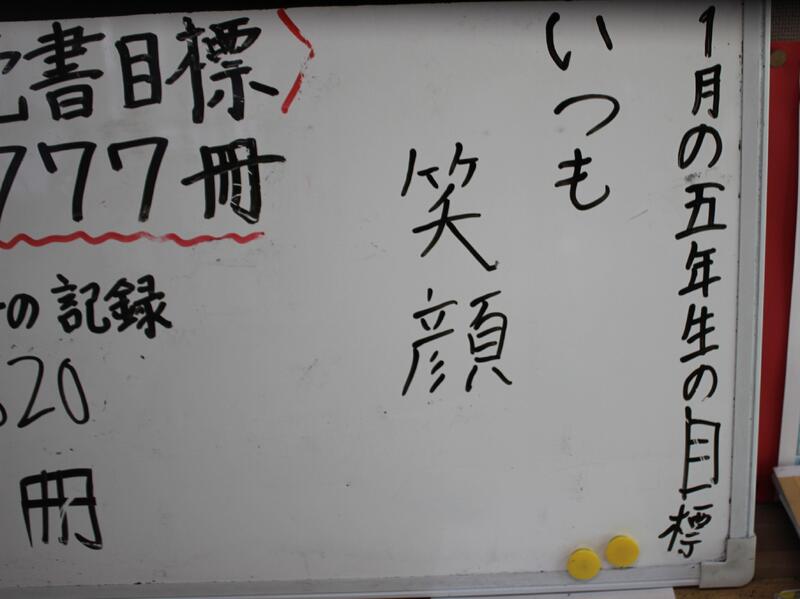 1月の五年生の目標
いつも
笑顔
書目標〉
777冊
の記録
20
冊